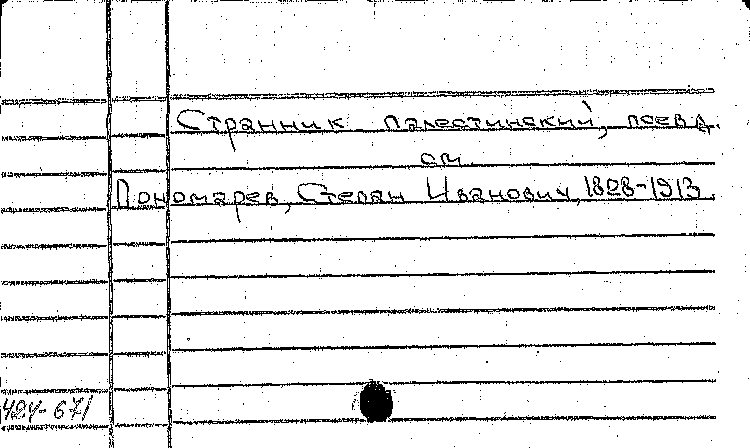 Странник палестинский, псевд.
см.
Пономарев, Степан Иванович, 1828-1913.
424-671